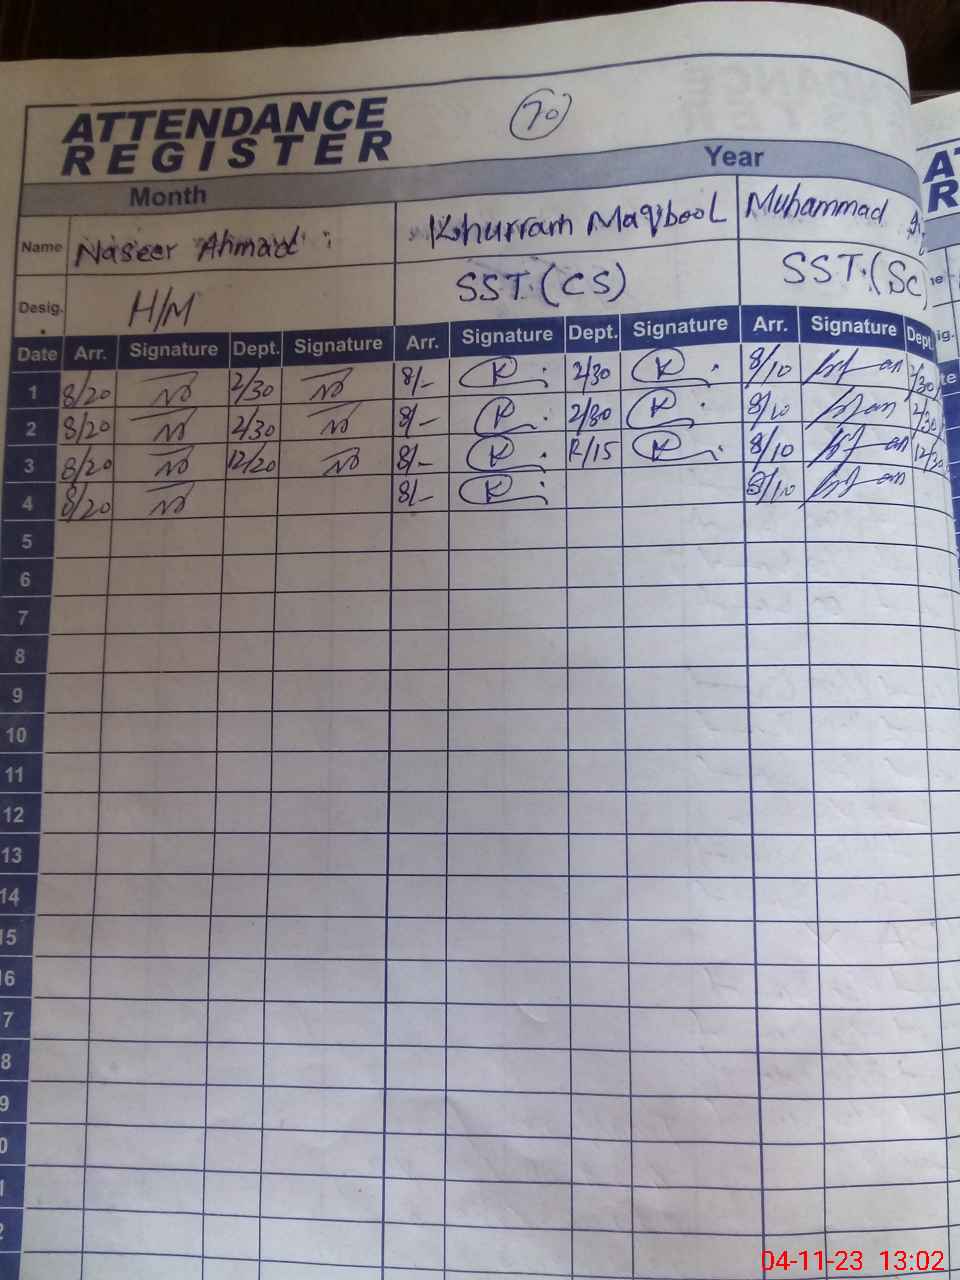 70
ATTENDANCE
REGISTER
Month Year
Name Naseer Ahmad Khurram Maqbool Muhammad
Desig. H/M SST.(CS) SST.(Sc)
Date Arr. Signature Dept. Signature Arr. Signature Dept. Signature Arr. Signature Dept.
1 8/20 2/30 8/- K 2/30 K 8/10 2/30
2 8/20 2/30 8/- K 2/30 K 8/10 2/30
3 8/20 12/20 8/- K /15 K 8/10 12/30
4 8/20 8/- K 8/10
5
6
7
8
9
10
11
12
13
14
15
16
7
8
9
0
1
2
04-11-23 13:02